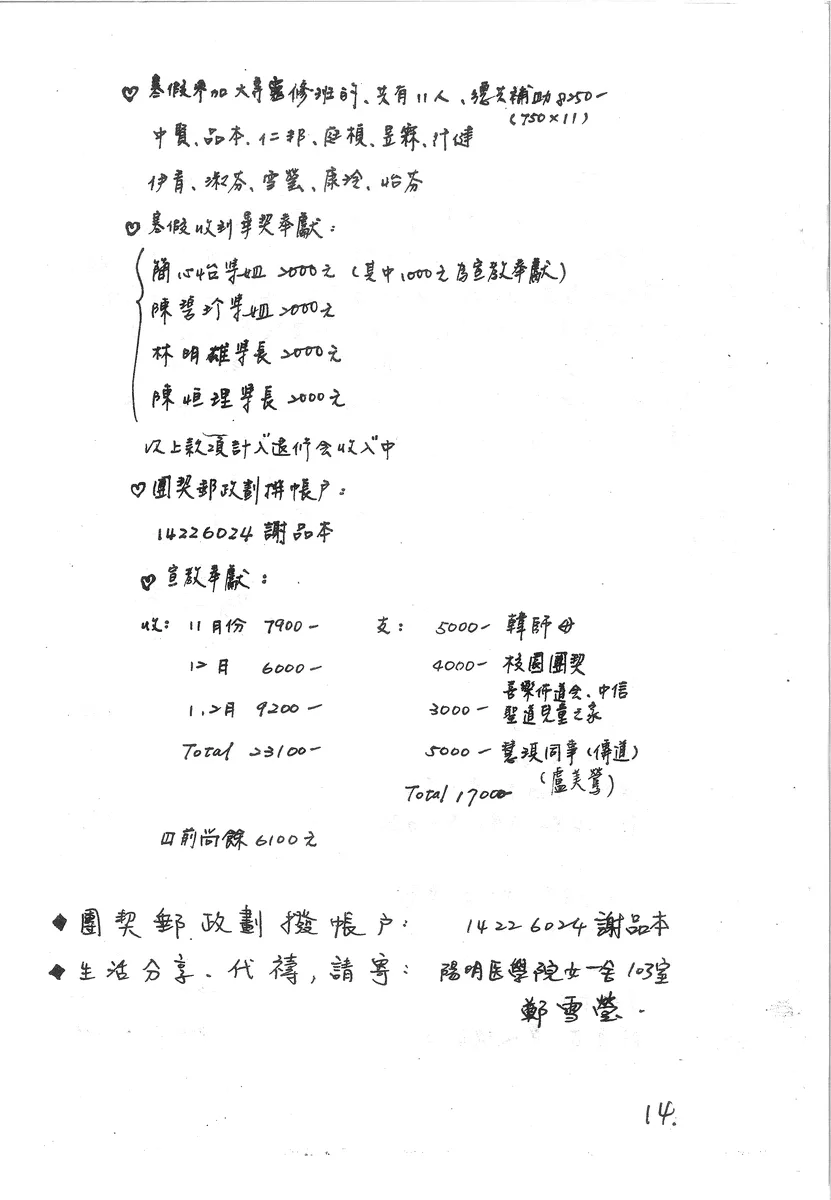 ♡ 寒假參加大專靈修班的、共有11人、總共補助8250-
(750×11)
中賢、品本、仁邦、庭楨、昱霖、計健
伊青、淑芬、雪瑩、康玲、怡芬
♡ 寒假收到畢契奉獻：
簡心怡學姐 2000元 (其中1000元為宣教奉獻)
陳碧玠學姐 2000元
林明雄學長 2000元
陳恒理學長 2000元
以上款項計入"退修会收入"中
♡ 團契郵政劃撥帳戶：
14226024 謝品本
♡ 宣教奉獻：
收： 11月份 7900- 支： 5000- 韓師母
12月 6000- 4000- 校園團契
喜樂佈道会、中信
1,2月 9200- 3000- 聖道兒童之家
Total 23100- 5000- 慧瑛同事(傳道)
(盧美鶯)
Total 17000
目前尚餘6100元
◆ 團契郵政劃撥帳戶： 14226024 謝品本
◆ 生活分享、代禱，請寄： 陽明医學院女一舍103室
鄭雪瑩.
14.